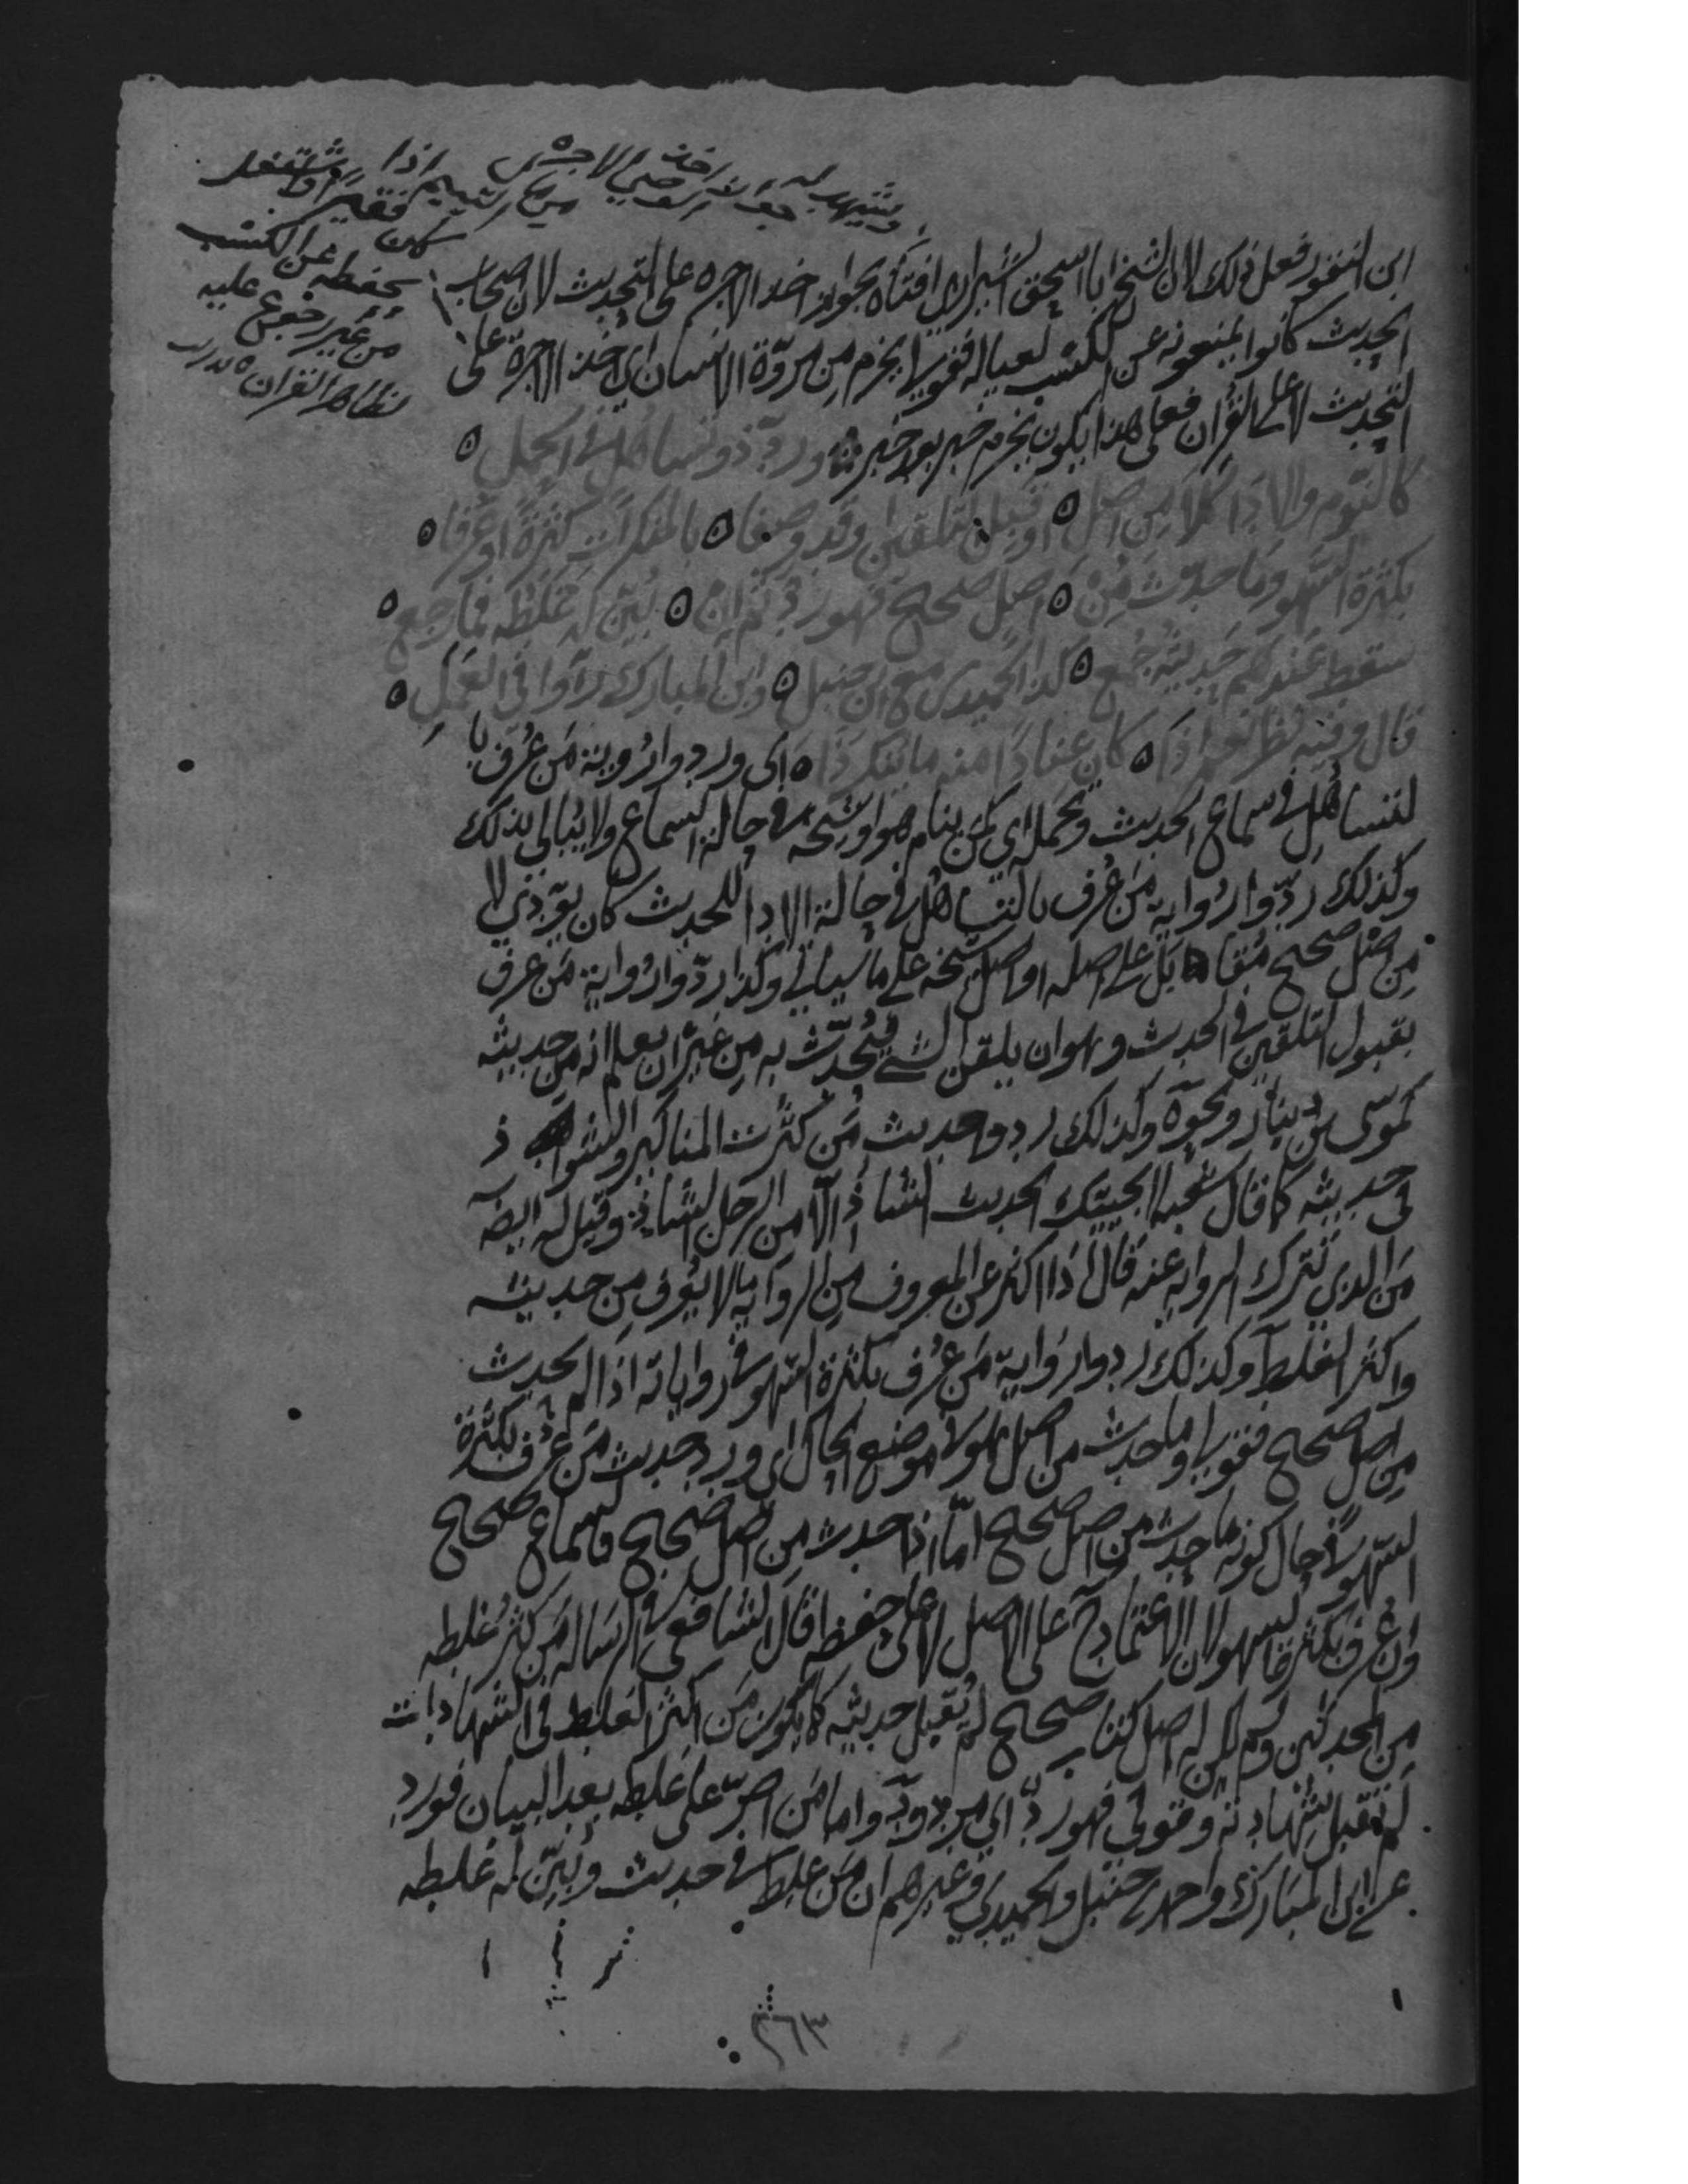 ويشهد له جواز اخذ الوصي الاجرة
من مال اليتيم اذا
كان فقيرا واشتغل
بحفظه عن الكسب
من غير رجوع عليه
لظاهر القران
ابن النقور فعل ذلك لان الشيخ ابا اسحق الشيرازي افتاه بجواز اخذ الاجرة على التحديث لان اصحاب
الحديث كانوا يمنعونه عن الكسب لعياله فقولي لا يخرم من مروة الانسان اي اخذ الاجرة على
التحديث لا على القران فعلى هذا يكون يخرم خبر بعد خبر ورد ذو تساهل في الحمل ه
كالنوم والادا كلا من اصل ه او قبل التلقين او قد وصفا ه بالمنكرات كثرة او عرفا ه
بكثرة السهو وما حدث من ه اصل صحيح فهو رد ثم ان ه بين له غلطه فما رجع ه
سقط عندهم حديثه جمع ه كذا الحميدي مع ابن حنبل ه وابن المبارك راوا في العمل ه
قال وفيه نظر نعم اذا ه كان عنادا منه ما ينكر ذا ه اي وردوا رواية من عرف با
لتساهل في سماع الحديث وتحمله اي كمن ينام هو او شيخه في حالة السماع ولا يبالي بذلك
وكذلك ردوا رواية من عرف بالتساهل في حالة الادا للحديث كان يودي لا
من اصل صحيح مقابل على اصله او اصل شيخه على ما سياتي وكذا ردوا رواية من عرف
بقبول التلقين في الحديث وهو ان يلقن الشي فيحدث به من غير ان يعلم انه من حديثه
كموسى بن دينار ونحوه وكذلك ردوا حديث من كثرت المناكير والشواذ
في حديثه كما قال شعبة لا يجييك الحديث الشاذ الا من الرجل الشاذ وقيل له ايضا
من الذي نترك الرواية عنه قال اذا اكثر عن المعروف من الرواية ما لا يعرف من حديثه
واكثر الغلط وكذلك ردوا رواية من عرف بكثرة السهو في رواياته اذا لم يحدث
من اصل صحيح فقولي وما حدث من اصل هو لا موضع الحال اي ورد حديث من عرف بكثرة
السهو في حال كونه ما حدث من اصل صحيح اما اذا حدث من اصل صحيح فالسماع صحيح
وان عرف بكثرة السهو لان الاعتماد ح على الاصل لا على حفظه قال الشافعي في الرسالة من كثر غلطه
من المحدثين ولم يكن له اصل كتاب صحيح لم يقبل حديثه كما يكون من اكثر الغلط في الشهادات
لم تقبل شهادته وقولي فهو رد اي مردود واما من اصر على غلطه بعد البيان فورد
عن ابن المبارك واحمد بن حنبل والحميدي وغيرهم ان من غلط في حديث وبين له غلطه